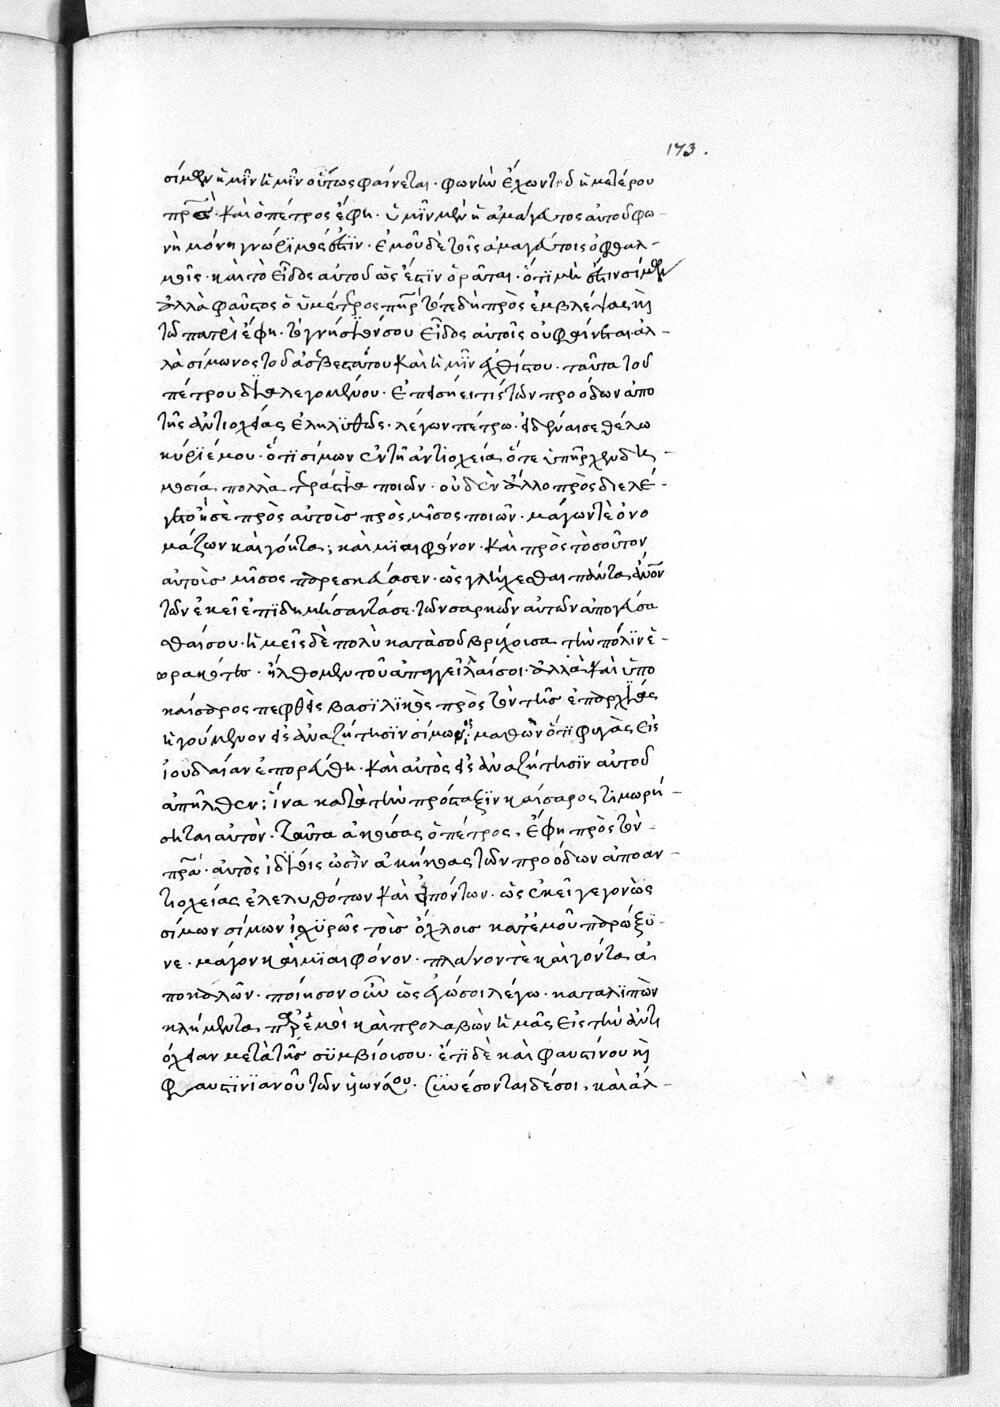 173.
σίμων ἡμῖν ἡμῖν οὕτως φαίνεται· φωνὴν ἔχων τοῦ ἡμετέρου
πρς· καὶ ὁ πέτρος ἔφη· ὑμῖν μὲν ἡ ἀμαγευτος αὐτοῦ φω-
νὴ μόνη γνώριμός ἐστϊν· ἐμοῦ δὲ τοῖς ἀμαγεύτοις ὀφθαλ-
μοῖς· καὶ τὸ εἶδος αὐτοῦ ὡς ἔστϊν ὁρᾶται· ὅτι μὴ ἔστιν σίμων
ἀλλὰ φαῦστος ὁ ὑμέτερος πηρ τότε δὴ πρὸς ἐμβλέψας κὴ
τῶ πατρὶ ἔφη· τὸ γνήσιόν σου εἶδος αὐτοῖς οὐ φαίνεται· ἀλ-
λὰ σίμωνος τοῦ ἀσεβεστάτου καὶ ἡμῖν ἐχθίστου· ταῦτα τοῦ
πέτρου διαλεγομένου· ἐπέστη εἷς τις τῶν προόδων ἀπο
τῆς ἀντιοχείας ἐληλϋθὼς· λέγων πέτρω· εἰδέναι σε θέλω
κύρϊέ μου· ὅτϊ σίμων ἐν τῆ ἀντϊοχεία ὅτε ὑπῆρχεν δη-
μοσία πολλὰ τεράστια ποιῶν· οὐδὲν ἄλλο πρὸς διελέ-
γετο ἢ σὲ πρὸς αὐτοὶσ πρὸς μῖσος ποιῶν· μάγων τὲ ὀνο
μάζων καὶ γόητα· καὶ μϊαιφόνον· καὶ πρὸς τὸσοῦτον
αὐτοὶσ μῖσος παρεσκεύασεν· ὡς γλίχεσθαι πάντα ἀνον
τῶν ἐκεῖ ἐπϊδημήσαντάσε· τῶν σαρκῶν αὐτῶν ἀπογεύσα
σθαί σου· ἡμεῖς δὲ πολὺ κατὰ σοῦ βρύχουσα τὴν πόλϊν ἑ-
ωρακότες· ἤλθομεν τοῦ ἀπαγγεῖλαί σοι· ἀλλὰ καὶ ὑπο
καίσαρος πεφθεὶς βασϊλϊκὸς πρὸς τὸν τῆς ἐπαρχίας
ἡγούμενον εἰς ἀναζήτησϊν σίμωνος· μαθὼν ὅτϊ φυγὰς εἰς
ἰουδαίαν ἐπορεύθη· καὶ αὐτὸς εἰς ἀναζήτησϊν αὐτοῦ
ἀπῆλθεν· ἵνα κατὰ τὴν πρόσταξϊν καίσαρος τιμωρή-
σηται αὐτὸν· ταῦτα ἀκούσας ὁ πέτρος, ἔφη πρὸς τὸν-
πρα· αὐτὸς ἰδίοις ὠσὶν ἀκήκοας τῶν προόδων ἀπο αν-
τιοχείας ἐλελυθότων καὶ εἰπόντων· ὡς ἐκεῖ γεγονὼς
σίμων σίμων ἰσχϋρῶς τοὶσ ὄχλοισ κατ ἐμοῦ παρώξυ-
νε· μάγον καὶ μϊαιφόνον· πλάνον τὲ καὶ γόητα ἀ
ποκαλῶν· ποίησον οὖν ὡς ἐγώ σοι λέγω· καταλϊπὼν
κλήμεντα παρ ἐμοὶ καὶ προλαβὼν ἡμᾶς εἰς τὴν ἀντι
όχειαν μετὰ τῆς σϋμβίου σου· ἔτϊ δὲ καὶ φαυστίνου κὴ
φαυστϊνϊανοῦ τῶν ὑῶν σου· Συνέσονται δέ σοι, καὶ ἀλ-